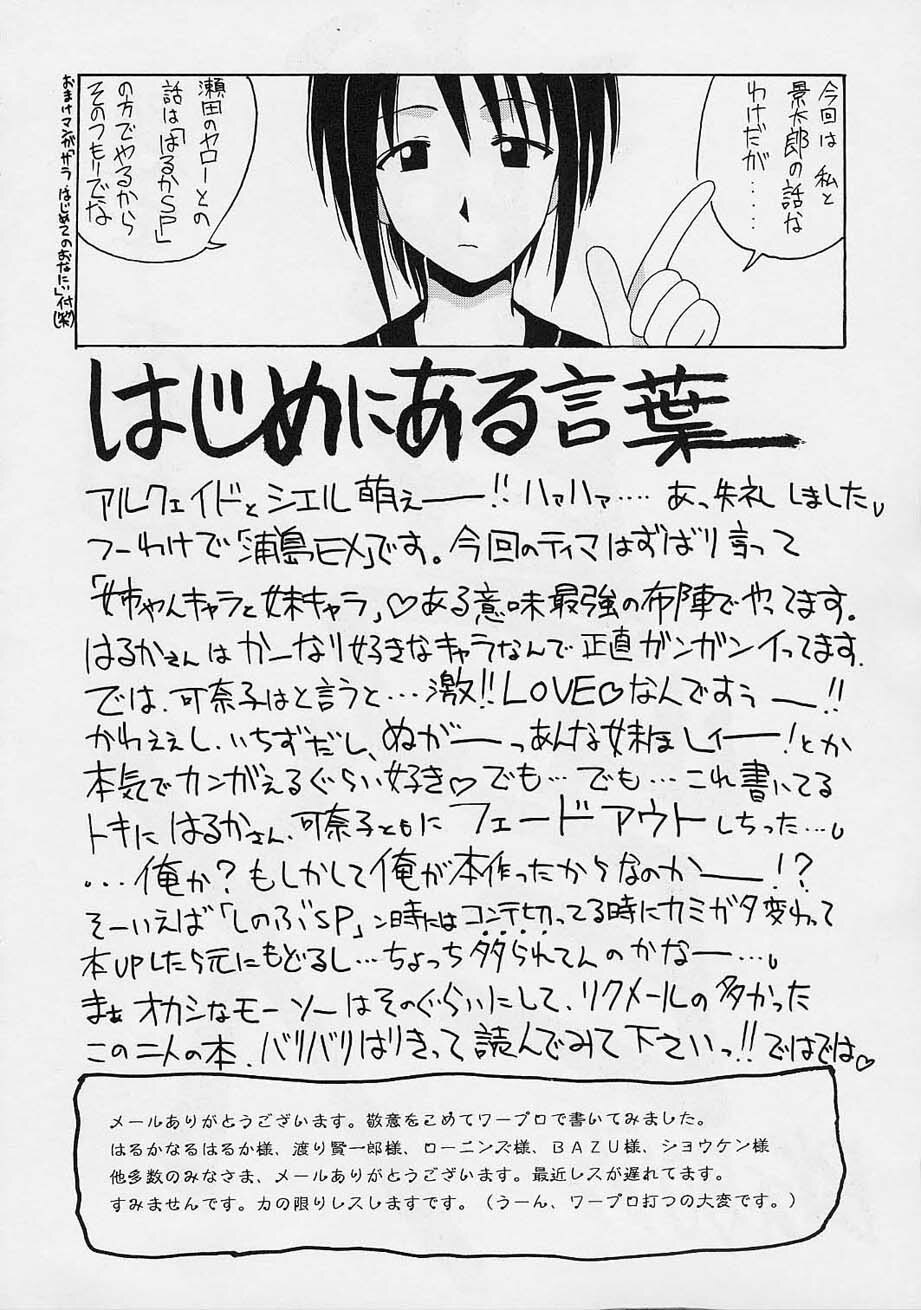 今回は 私と
景太郎の話な
わけだが‥‥
瀬田のヤローとの
話は「はるかSP」
の方でやるから
そのつもりでな
はじめにある言葉
アルクェイドとシエル萌えー!! ハァハァ…. あっ失礼しました
つーわけで「浦島EX」です。今回のテイマはずばり言って
「姉ちゃんキャラと妹キャラ」♡ある意味最強の布陣でやってます。
はるかさんはかーなり好きなキャラなんで正直ガンガンイってます.
では、可奈子はと言うと…激!!LOVE♡なんですぅー!!
かわええし、いちずだし、ぬがーっあんな妹ほしィー!とか
本気でカンがえるぐらい好き♡でも…でも…これ書いてる
トキにはるかさん、可奈子ともにフェードアウトしちった…
...俺か?もしかして俺が本作ったからなのかー!?
そーいえば「しのぶSP」ン時にはコンテ切ってる時にカミガタ変わって
本UPしたら元にもどるし…ちょっち祟られてんのかなー…
まぁオカシなモーソーはそのぐらいにして、リクメールの多かった
この二人の本、バリバリはりきって読んでみて下さいっ!!ではでは♡
メールありがとうございます。敬意をこめてワープロで書いてみました。
はるかなるはるか様、渡り賢一郎様、ローニンズ様、BAZU様、ショウケン様
他多数のみなさま、メールありがとうございます。最近レスが遅れてます。
すみませんです。力の限りレスしますです。(うーん、ワープロ打つの大変です。)